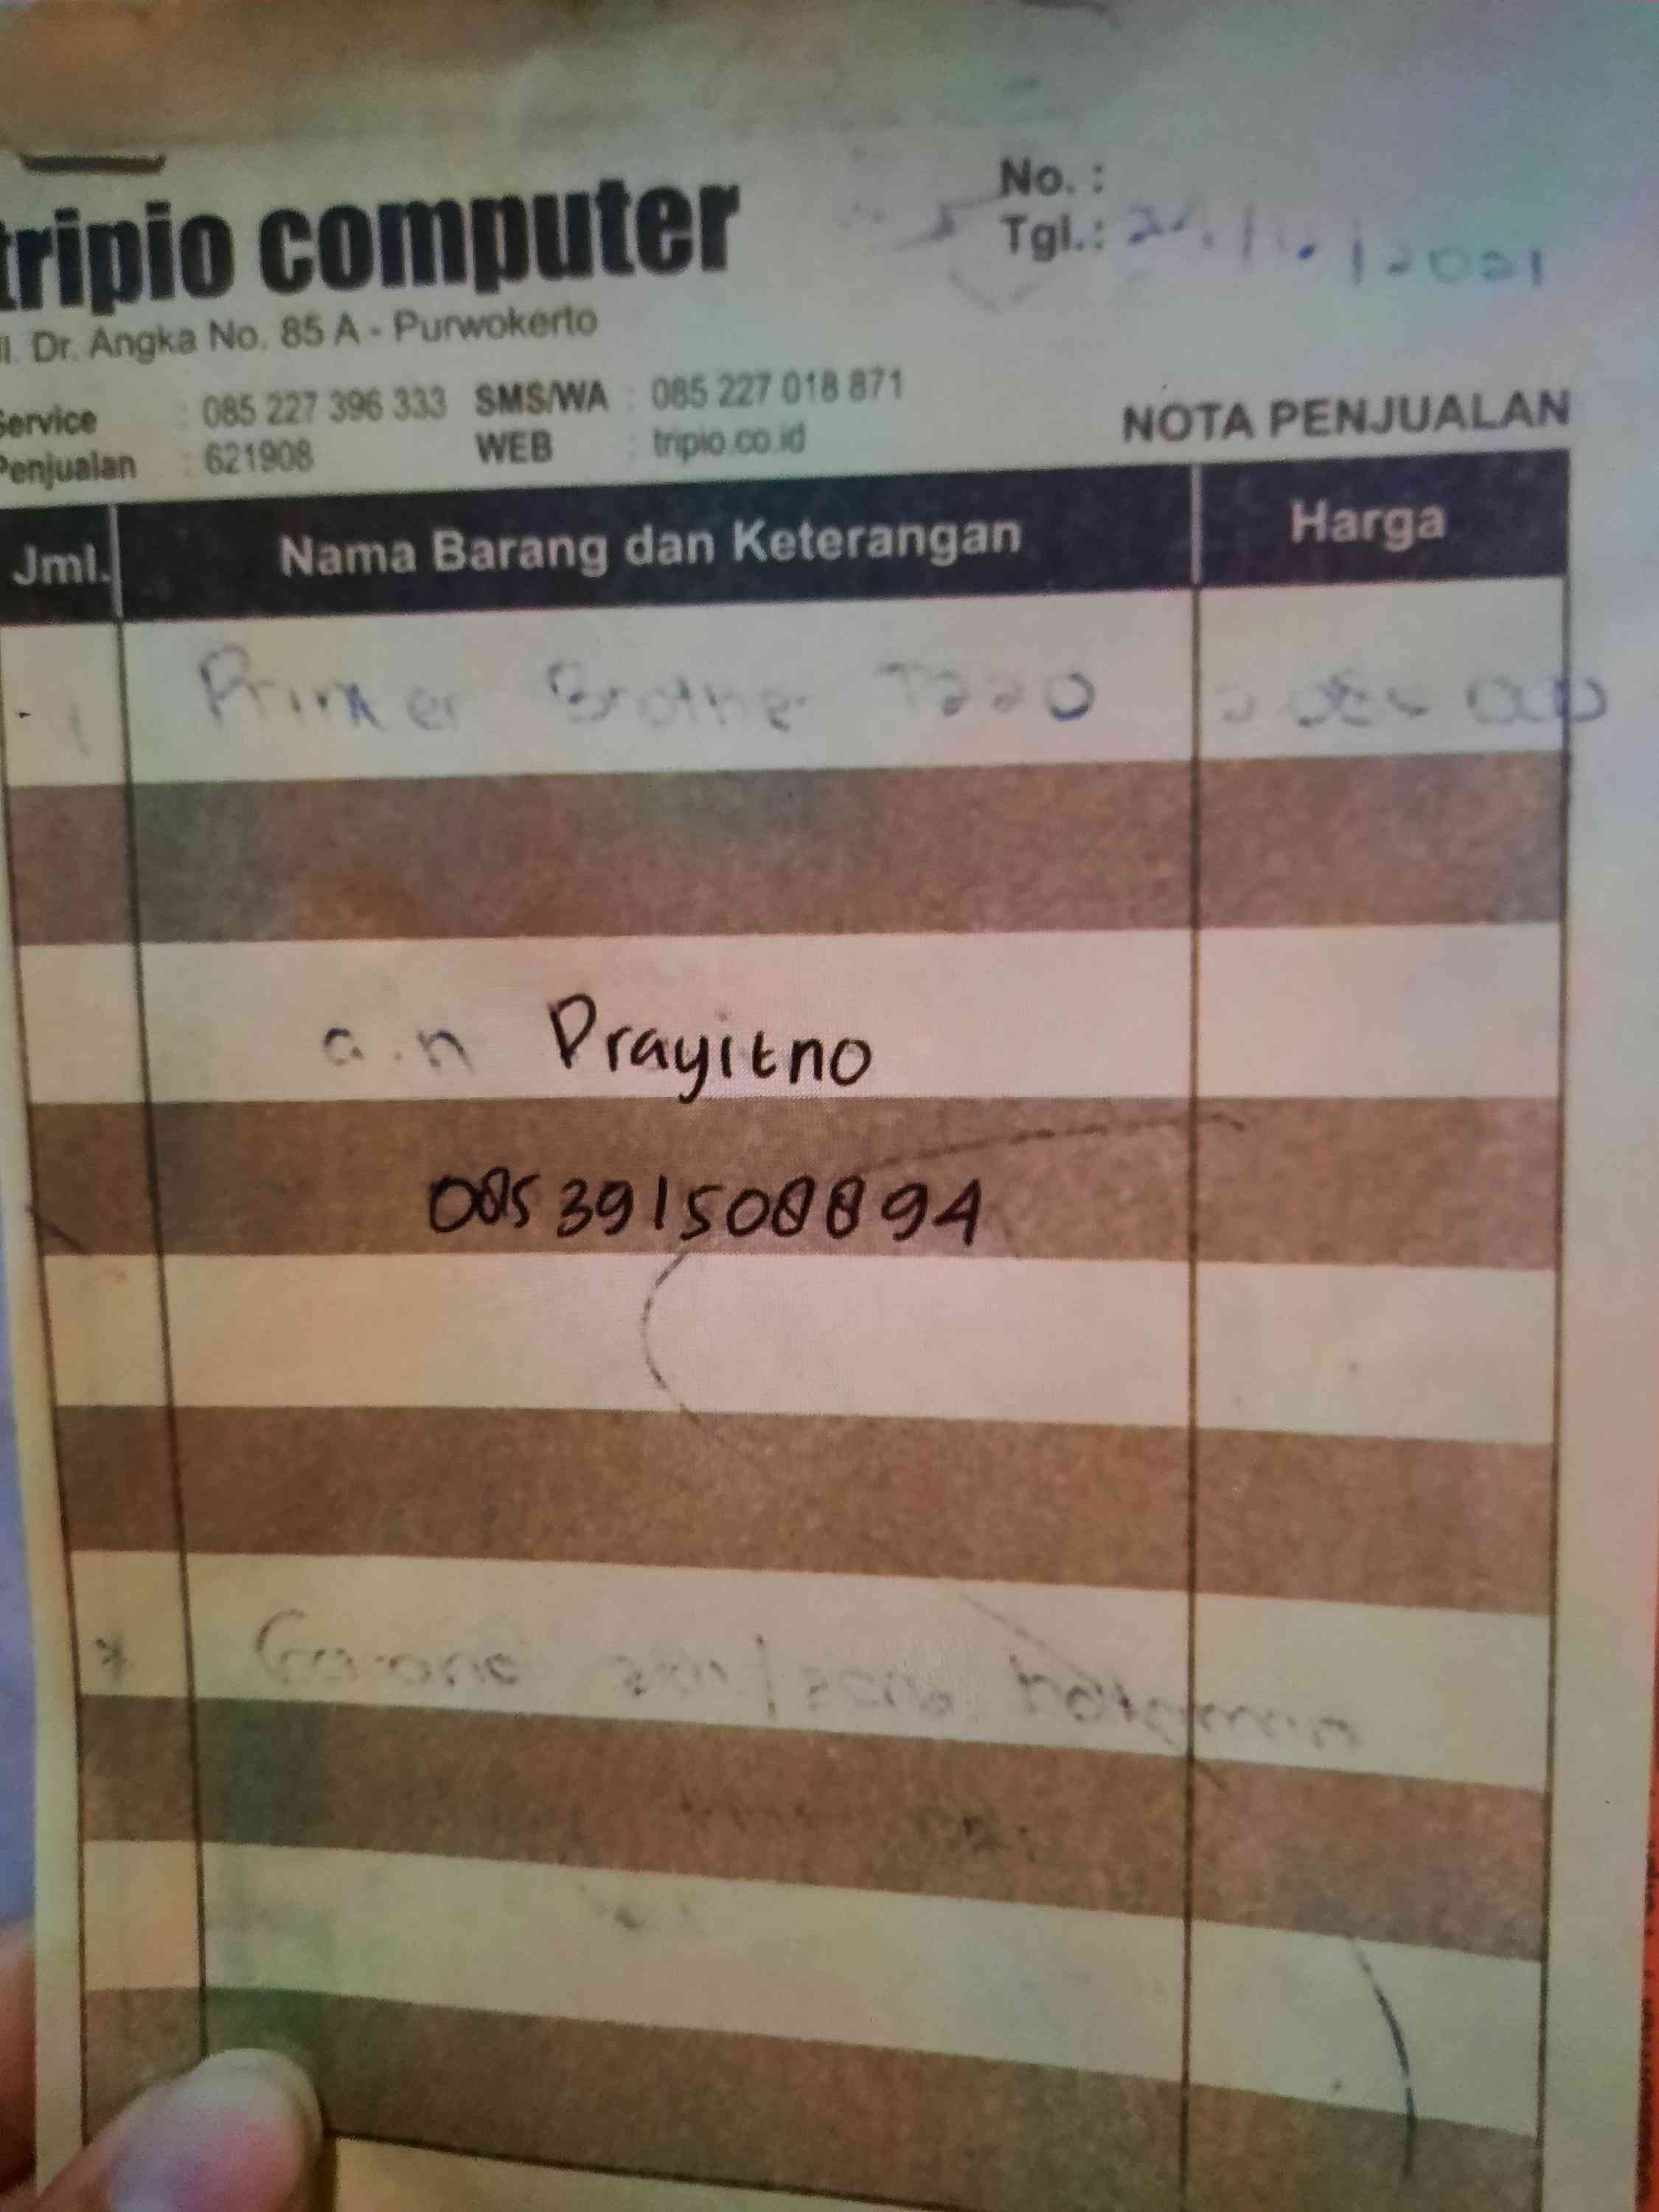 tripio computer
No. :
Tgl.: /2021
Jl. Dr. Angka No. 85 A - Purwokerto
Service : 085 227 396 333 SMS/WA : 085 227 018 871
Penjualan : 621908 WEB : tripio.co.id
NOTA PENJUALAN
Jml. Nama Barang dan Keterangan Harga
1 Printer Brother T220
a.n Prayitno
085391508894
*